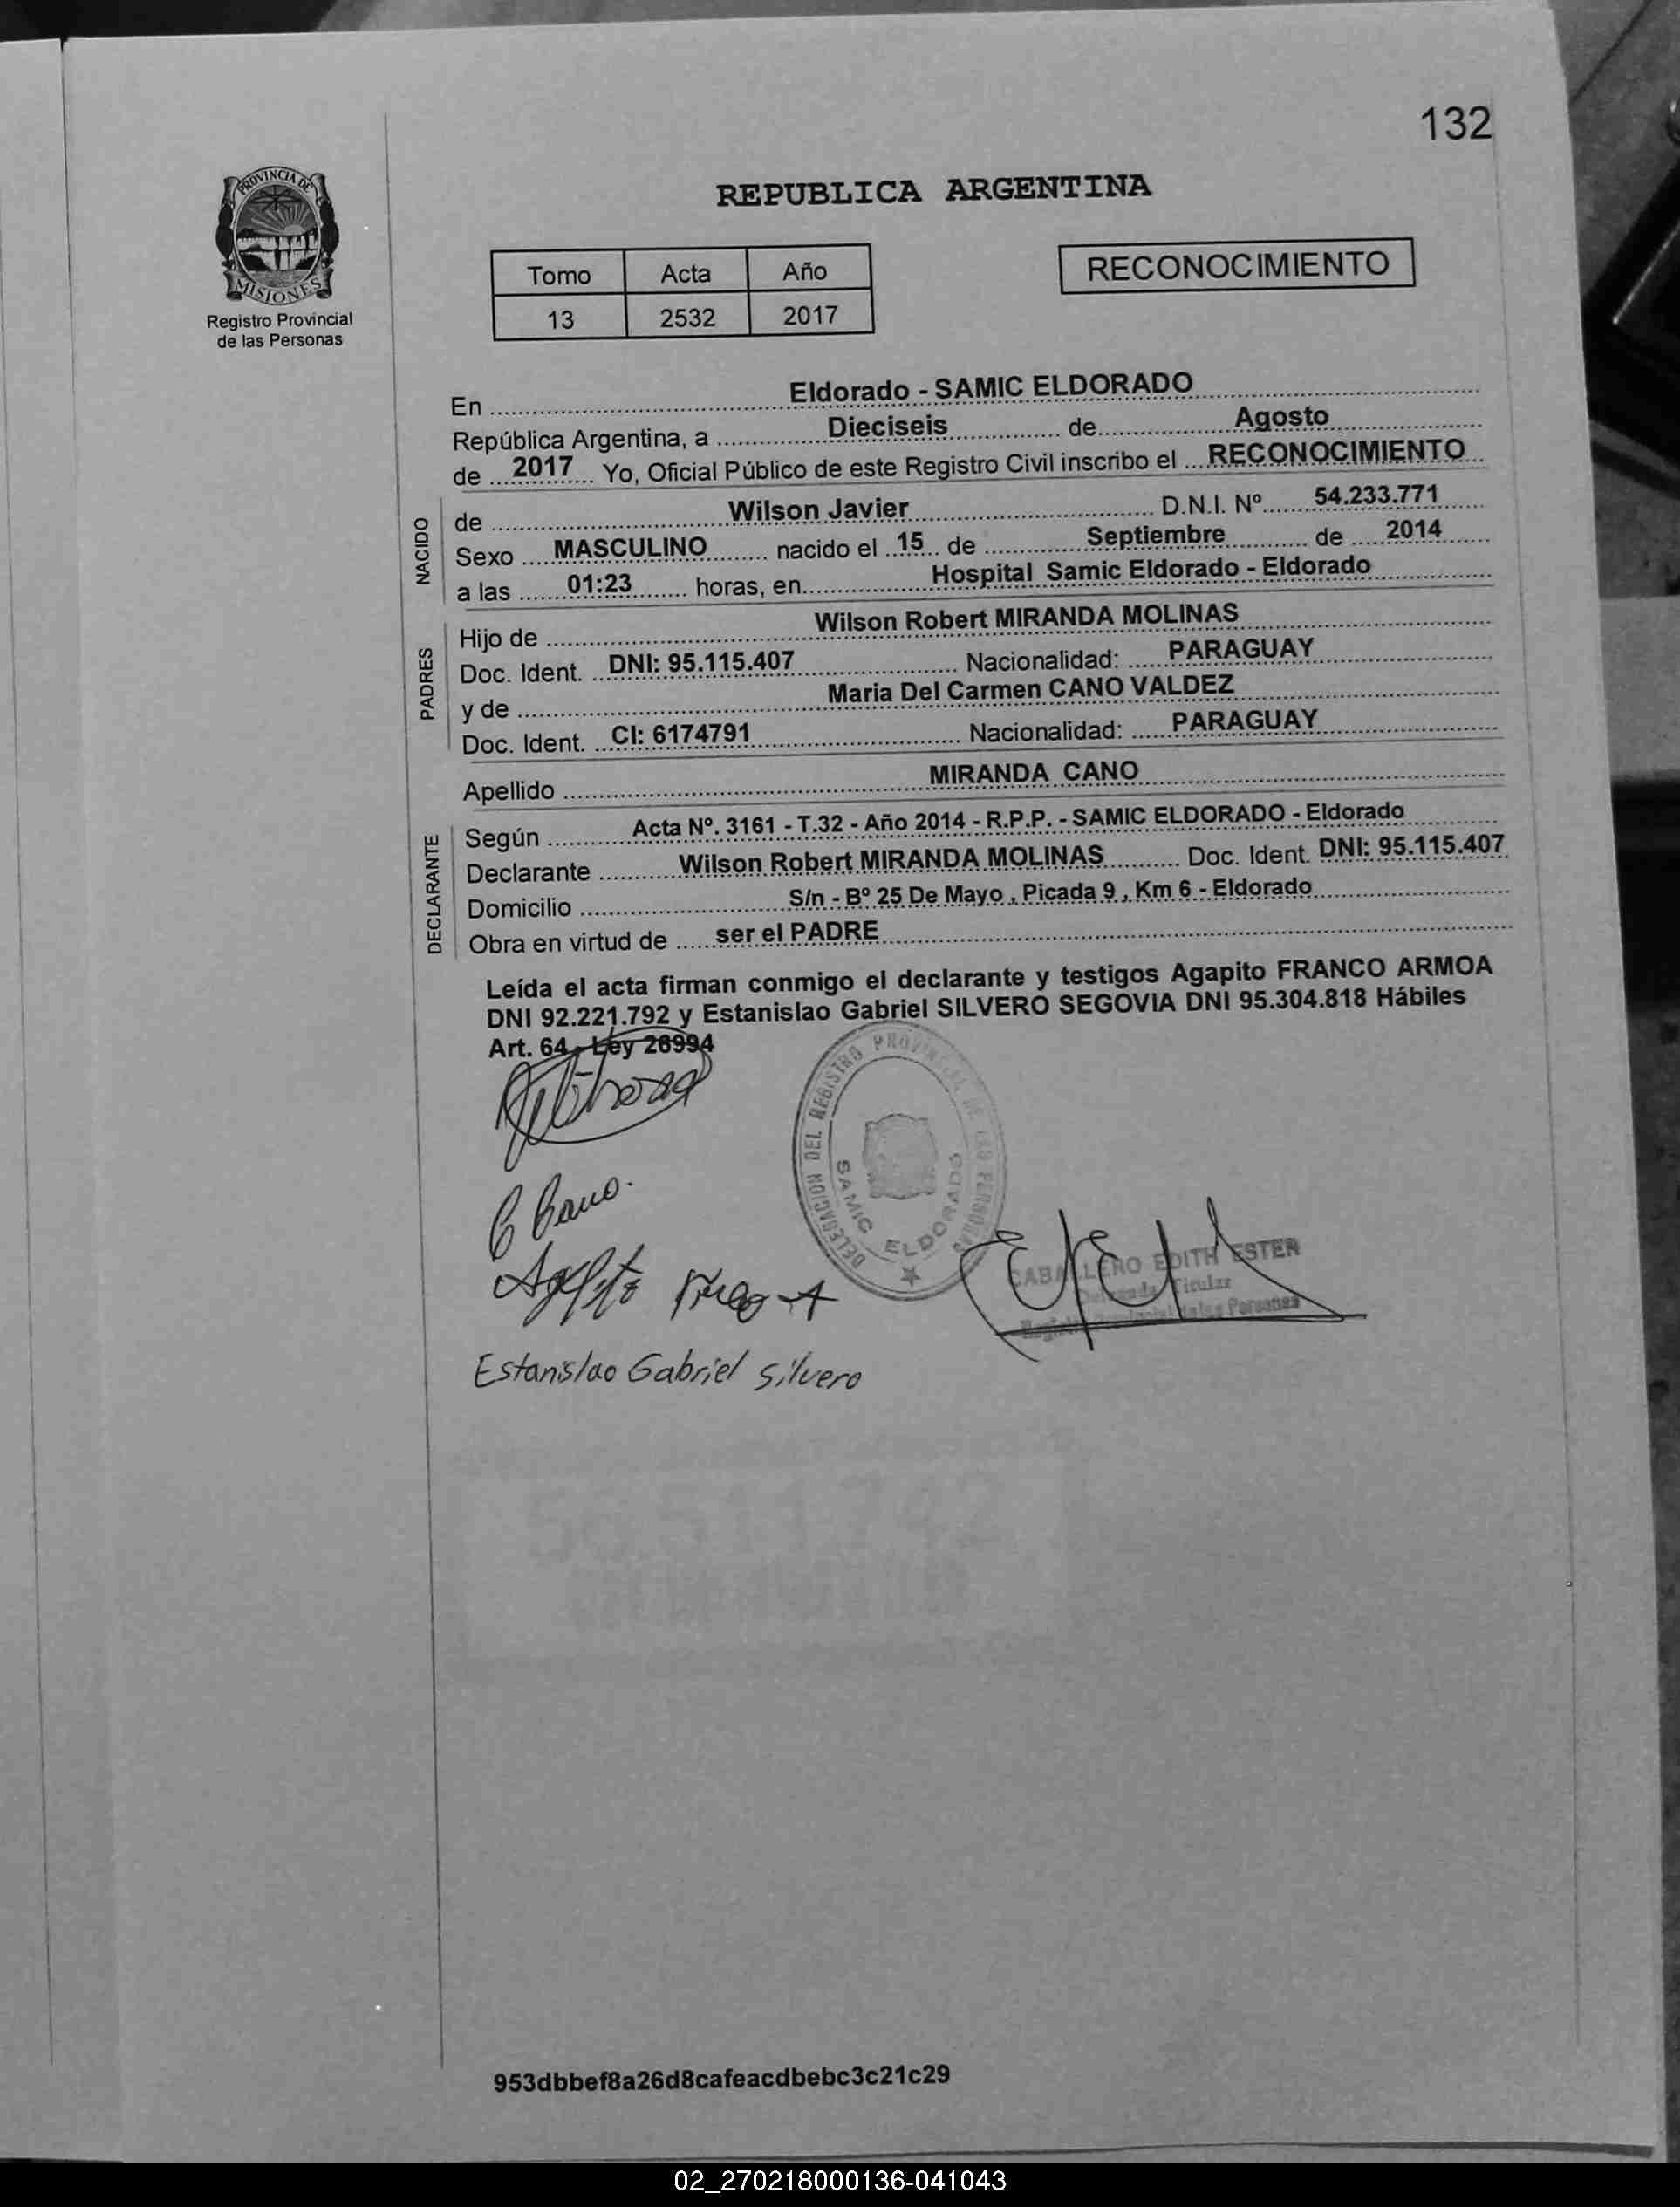 132
PROVINCIA DE
MISIONES
Registro Provincial
de las Personas
REPUBLICA ARGENTINA
Tomo Acta Año
13 2532 2017
RECONOCIMIENTO
En Eldorado - SAMIC ELDORADO
República Argentina, a Dieciseis de Agosto
de 2017 Yo, Oficial Público de este Registro Civil inscribo el RECONOCIMIENTO
NACIDO
de Wilson Javier D.N.I. Nº 54.233.771
Sexo MASCULINO nacido el 15 de Septiembre de 2014
a las 01:23 horas, en Hospital Samic Eldorado - Eldorado
PADRES
Hijo de Wilson Robert MIRANDA MOLINAS
Doc. Ident. DNI: 95.115.407 Nacionalidad: PARAGUAY
y de Maria Del Carmen CANO VALDEZ
Doc. Ident. CI: 6174791 Nacionalidad: PARAGUAY
Apellido MIRANDA CANO
DECLARANTE
Según Acta Nº. 3161 - T.32 - Año 2014 - R.P.P. - SAMIC ELDORADO - Eldorado
Declarante Wilson Robert MIRANDA MOLINAS Doc. Ident. DNI: 95.115.407
Domicilio S/n - Bº 25 De Mayo , Picada 9 , Km 6 - Eldorado
Obra en virtud de ser el PADRE
Leída el acta firman conmigo el declarante y testigos Agapito FRANCO ARMOA
DNI 92.221.792 y Estanislao Gabriel SILVERO SEGOVIA DNI 95.304.818 Hábiles
Art. 64 - Ley 26994
DELEGACION DEL REGISTRO PROVINCIAL DE LAS PERSONAS
SAMIC ELDORADO
C Cano.
CABALLERO EDITH ESTER
Delegada Titular
Registro Provincial de las Personas
Estanislao Gabriel Silvero
953dbbef8a26d8cafeacdbebc3c21c29
02_270218000136-041043